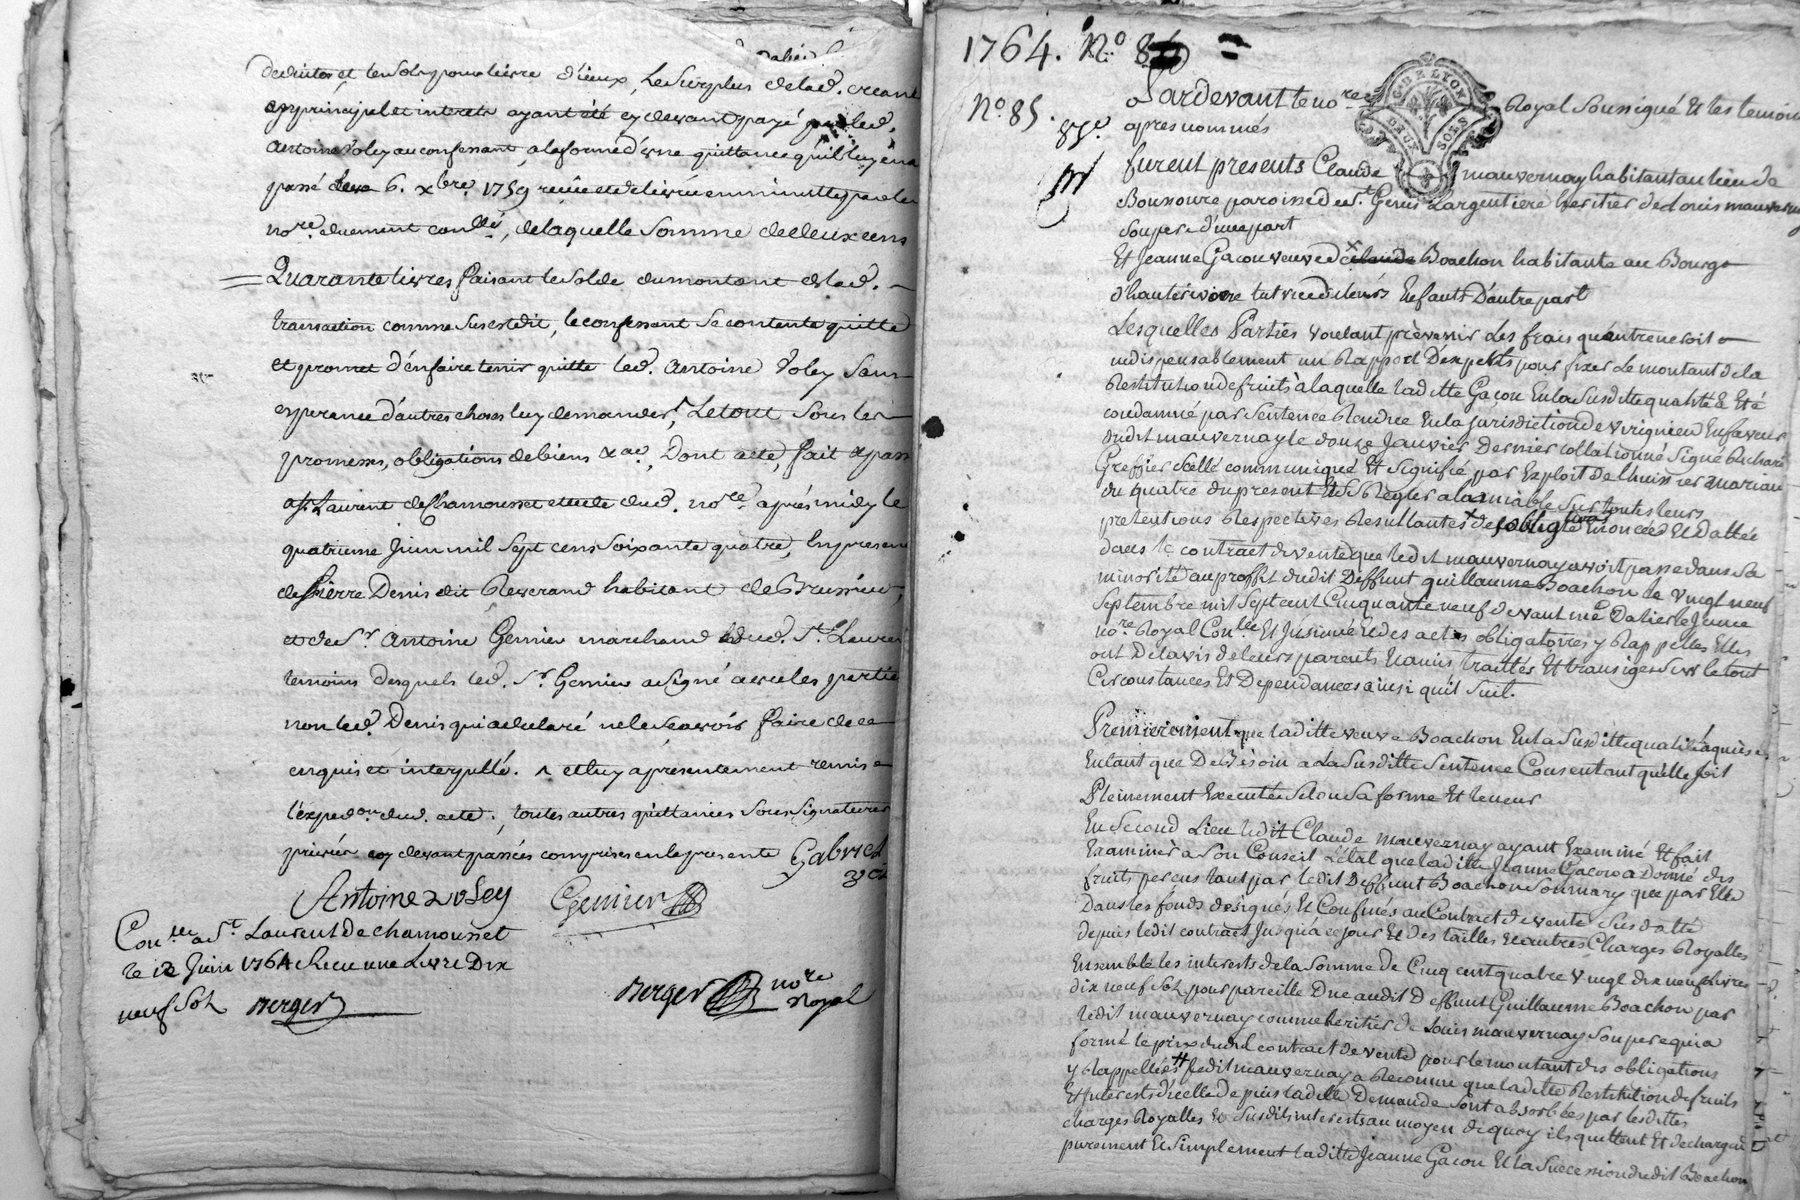 et le solvy pour livre d'iceux, le surplus de lad. creance
en principal et interets ayant été cy devant payé par led.
Antoine Voley au confessant, a la forme d'une quittance qu'il luy en a
passé le 6. xbre. 1759 recüe et delivrée en minutte par le
nore. duement conllé, de laquelle somme de deux cens
Quarante livres faisant le solde du montant de lad.
transaction comme sus est dit, le confessant se contente quitte
et promet d'en faire tenir quitte led. Antoine Voley sans
esperance d'autres choses luy demander, Le tout sous les
promesses, obligations de biens & ac, Dont acte, fait & passé
a St. Laurent de Chamousset etude dud. nore. aprés midy le
quatrieme Juin mil sept cens soixante quatre, En presence
de Pierre Denis dit Reverand habitant de Brussieu,
et de Sr. Antoine Genier marchand dud. St. Laurent
temoins desquels led. Sr. Genier a signé avec les parties
non led. Denis qui a declaré ne le scavoir faire de ce
enquis et interpellé. ^ et luy a presentement remis
l'expedon. dud. acte. toutes autres quittances sous signatures
privées cy devant passées comprises en la presente Gabriel
Antoine Voley Genier
Conllé a St. Laurent de chamousset
le 12 Juin 1764 Receu une Livre Dix
neuf sols Berger
Berger nore Royal
1764. No. 84
No. 85.
85e.
Pardevant le nore Royal soussigné Et les temoins
apres nommés
G. DE LYON
DEUX SOLS
furent presents Claude mauvernay habitant au lieu de
Bousoure paroisse de St. Genis Largentiere heritier de Louis mauvernay
son pere d'une part
Et Jeanne Gacon veuve de x claude Boachon habitante au Bourg
d'hauterivoire tutrice de leurs Enfants D'autre part
Lesquelles Parties voulant prèvenir Les frais qu'entreneroit
indispensablement un Rapport D'experts pour fixer Le montant de la
Restitution de fruits à laquelle laditte Gacon En la susditte qualité a Eté
condamné par sentence Rendue En la Jurisdiction de Vrignieu En faveur
dudit mauvernay le douze Janvier Dernier collationné signé Richard
Greffier scellé communiqué Et signifié par Exploit de l'huissier marian
du quatre du present Et se Regler a lamiable sur toutes leurs
pretentions Respectives Resultantes x des obligations Enoncées Et Dattée
dans le contract de vente que ledit mauvernay avoit passé dans sa
minorité au proffit dudit Deffunt guillaume Boachon le vingt neuf
septembre mil sept cent Cinquante neuf devant me Dalier le Jeune
nore. Royal Conllé Et Insinué Et des actes obligatoires y Rappellés Elles
ont De lavis de leurs parents Et amis traittés Et transiges sur le tout
Circonstances Et Dependances ainsi quil suit.
Premierement que laditte veuve Boachon En la susditte qualité aquiesce
Entant que De besoin a La susditte sentence Consentant quelle soit
Pleinement Executée selon sa forme Et teneur
En second Lieu ledit Claude mauvernay ayant Examiné Et fait
Examiner à son Conseil L'état que laditte Jeanne Gacon a Donné des
fruits percus tant par ledit Deffunt Boachon son mary que par Elle
Dans les fonds designés Et Confinés au Contract de vente susdatté
depuis ledit contract Jusqua ce jour Et des tailles Et autres Charges Royalles
Ensemble les interests de la somme de Cinq cent quatre vingt dix neuf livres
dix neuf sols pour pareille Due audit Deffunt Guillaume Boachon par
ledit mauvernay comme heritier de Louis mauvernay son pere qui a
formé le prix dudit contract de vente pour le montant des obligations
y Rappellées # ledit mauvernay a Reconnu que laditte Restitution de fruits
Et interests d'icelle depuis laditte Demande sont absorbées par lesdittes
charges Royalles Et susdits interests au moyen de quoy ils quittent Et dechargent
purement Et simplement laditte Jeanne Gacon Et la succession dudit Boachon